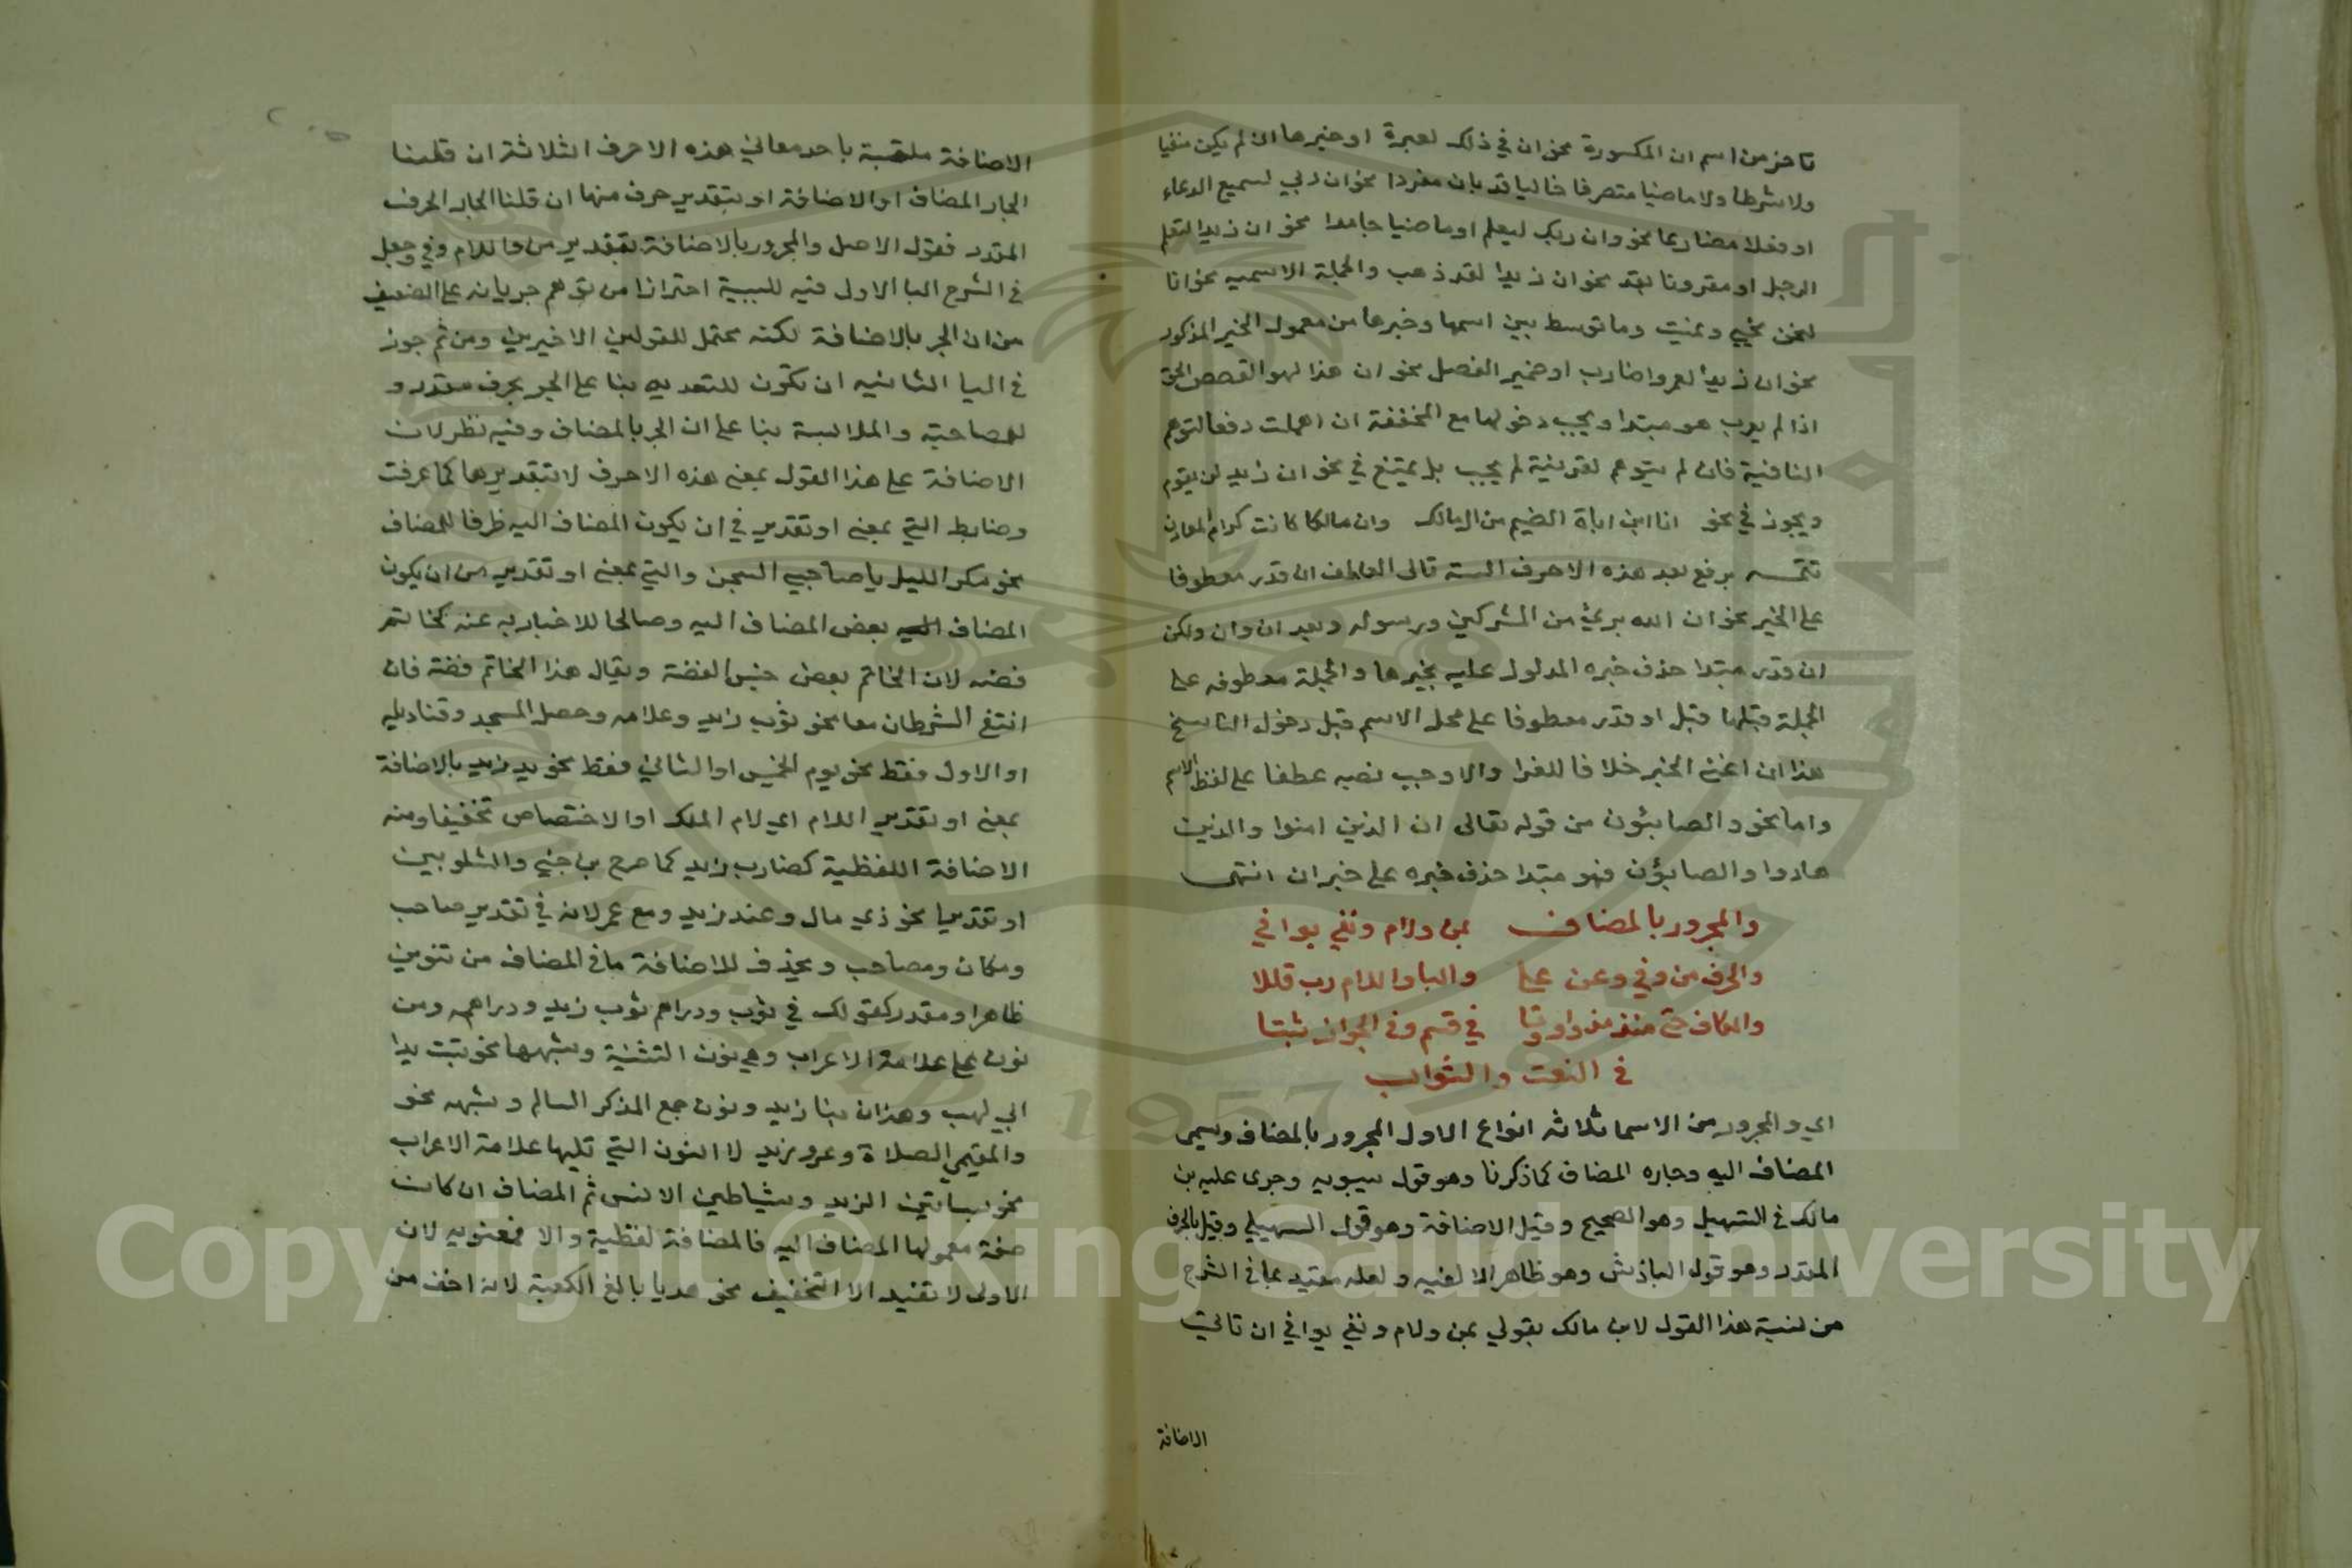 تاخر من اسم ان المكسورة نحو ان في ذلك لعبرة او خبرها ان لم يكن منفيا
ولا شرطا ولا ماضيا متصرفا خاليا من قد بان مفردا نحو ان ربي لسميع الدعاء
او فعلا مضارعا نحو وان ربك ليعلم او ماضيا جامدا نحو ان زيدا لنعم
الرجل او مقرونا بقد نحو ان زيدا لقد ذهب والجملة الاسمية نحو انا
لنحن نحيي ونميت وما توسط بين اسمها وخبرها من معمول الخبر المذكور
نحو ان زيدا لعمروا ضارب او ضمير الفصل نحو ان هذا لهو القصص الحق
اذا لم يعرب هو مبتدا ويجب دخولها مع المخففة ان اهملت دفعا لتوهم
النافية فان لم يتوهم لقرينة لم يجب بل يمتنع في نحو ان زيد لن يقوم
ويجوز في نحو انا ابن اباة الضيم من ال مالك وان مالكا كانت كرام المعادن
تتمه يرفع بعد هذه الاحرف الستة تالي العاطف ان قدر معطوفا
على الخبر نحو ان الله بريئ من المشركين ورسوله وبعد ان وان ولكن
ان قدر مبتدا حذف خبره المدلول عليه بخبرها والجملة معطوفه على
الجملة قبلها قبل او قدر معطوفا على محل الاسم قبل دخول الناسخ
هذا ان اغنى الخبر خلافا للفرا والا وجب نصبه عطفا على لفظ الاسم
واما نحو والصابئون من قوله تعالى ان الذين امنوا والذين
هادوا والصابؤن فهو مبتدا حذف خبره على خبر ان انتهى
والمجرور بالمضاف بمن ولام ونفي يوافي
والحرف من وفي وعن على والبا واللام رب قللا
والكاف حتى منذ مذ واو وتا في قسم وفى الجواز ثبتا
فى النعت والثواب
اي والمجرور من الاسما ثلاثه انواع الاول المجرور بالمضاف ويسمى
المضاف اليه وجاره المضاف كما ذكرنا وهو قول سيبويه وجرى عليه بن
مالك فى التسهيل وهو الصحيح وقيل الاضافة وهو قول السهيلي وقيل بالحرف
المقدر وهو قول الباذش وهو ظاهر الالفيه ولعله مقيد بما في الشرح
من نسبة هذا القول لابن مالك بقولي بمن ولام ونفي يوافي ان تاتي
الاضافة
الاضافة ملتبسة باحد معاني هذه الاحرف الثلاثة ان قلنا
الجار المضاف او الاضافة او بتقدير حرف منها ان قلنا الجار الحرف
المقدر فقول الاصل والمجرور بالاضافة بتقدير من واللام وفي وجعل
في الشرح البا الاولى فيه للسببية احترازا من توهم جريانه على الضعيف
من ان الجر بالاضافة لكنه محتمل للقولين الاخيرين ومن ثم جوز
في البا الثانيه ان تكون للتعديه بنا على الجر بحرف مقدر و
للمصاحبة والملابسة بنا على ان الجر بالمضاف وفيه نظر لان
الاضافة على هذا القول بمعنى هذه الاحرف لا بتقديرها كما عرفت
وضابط التي بمعنى او تقدير في ان يكون المضاف اليه ظرفا للمضاف
نحو مكر الليل يا صاحبي السجن والتي بمعنى او تقدير من ان يكون
المضاف بعض المضاف اليه وصالحا للاخبار به عنه كخاتم
فضه لان الخاتم بعض جنس الفضة ويقال هذا الخاتم فضة فان
انتفى الشرطان معا نحو ثوب زيد وغلامه وحصر المسجد وقناديله
او الاول فقط نحو يوم الخميس او الثاني فقط نحو يد زيد بالاضافة
بمعنى او تقدير اللام اي لام الملك او الاختصاص تخفيفا ومنه
الاضافة اللفظية كضارب زيد كما صرح بن جني والشلوبين
او تقديرها نحو ذي مال وعند زيد ومع عمر لانه في تقدير صاحب
ومكان ومصاحب ويحذف للاضافة ما في المضاف من تنوين
ظاهر او مقدر كقولك في ثوب ودراهم ثوب زيد ودراهمه ومن
نون على علامة الاعراب وهي نون التثنية وشبهها نحو تبت يدا
ابي لهب وهذان بنا زيد ونون جمع المذكر السالم وشبهه نحو
والمقيمي الصلاة وعمرو زيد لا النون التي تليها علامة الاعراب
نحو بساتين الزيد وشياطين الانس ثم المضاف ان كانت
صفة معمولها المضاف اليه فالمضافة لفظية والا فمعنويه لان
الاولى لا تفيد الا التخفيف نحو هديا بالغ الكعبة لانه اخف من
Copyright © King Saud University
1957